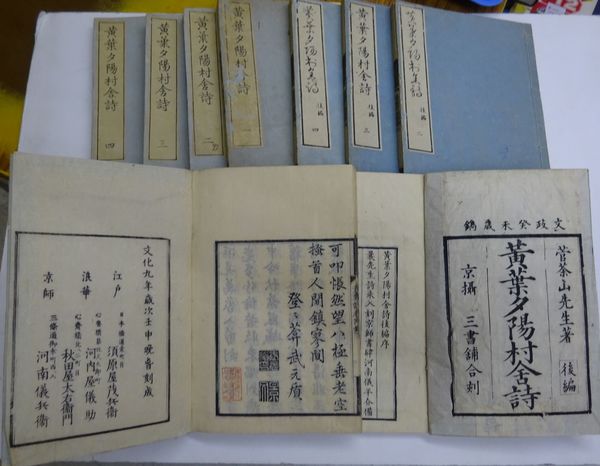 黄葉夕陽村舎詩 四
黄葉夕陽村舎詩 三
黄葉夕陽村舎詩 二
黄葉夕陽村舎詩 一
黄葉夕陽村舎詩 後編 四
黄葉夕陽村舎詩 後編 三
黄葉夕陽村舎詩 後編 二
文政癸未歳鐫
菅茶山先生著 後編
黄葉夕陽村舎詩
京攝 三書舗合刻
黄葉夕陽村舎詩後編序
先生詩未入刻京師書肆河南儀平
可叩悵然望八極垂老空
搔首人間鎮寥闃
登々菴武元質
文化九年歳次壬申晩春刻成
江戸 須原屋茂兵衛
浪華 河内屋儀助
秋田屋太右衛門
京師 河南儀兵衛